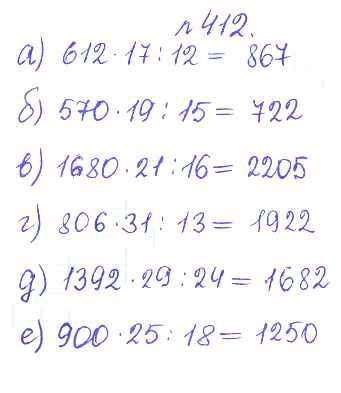 № 412.
а) 612 · 17 : 12 = 867
б) 570 · 19 : 15 = 722
в) 1680 · 21 : 16 = 2205
г) 806 · 31 : 13 = 1922
д) 1392 · 29 : 24 = 1682
е) 900 · 25 : 18 = 1250